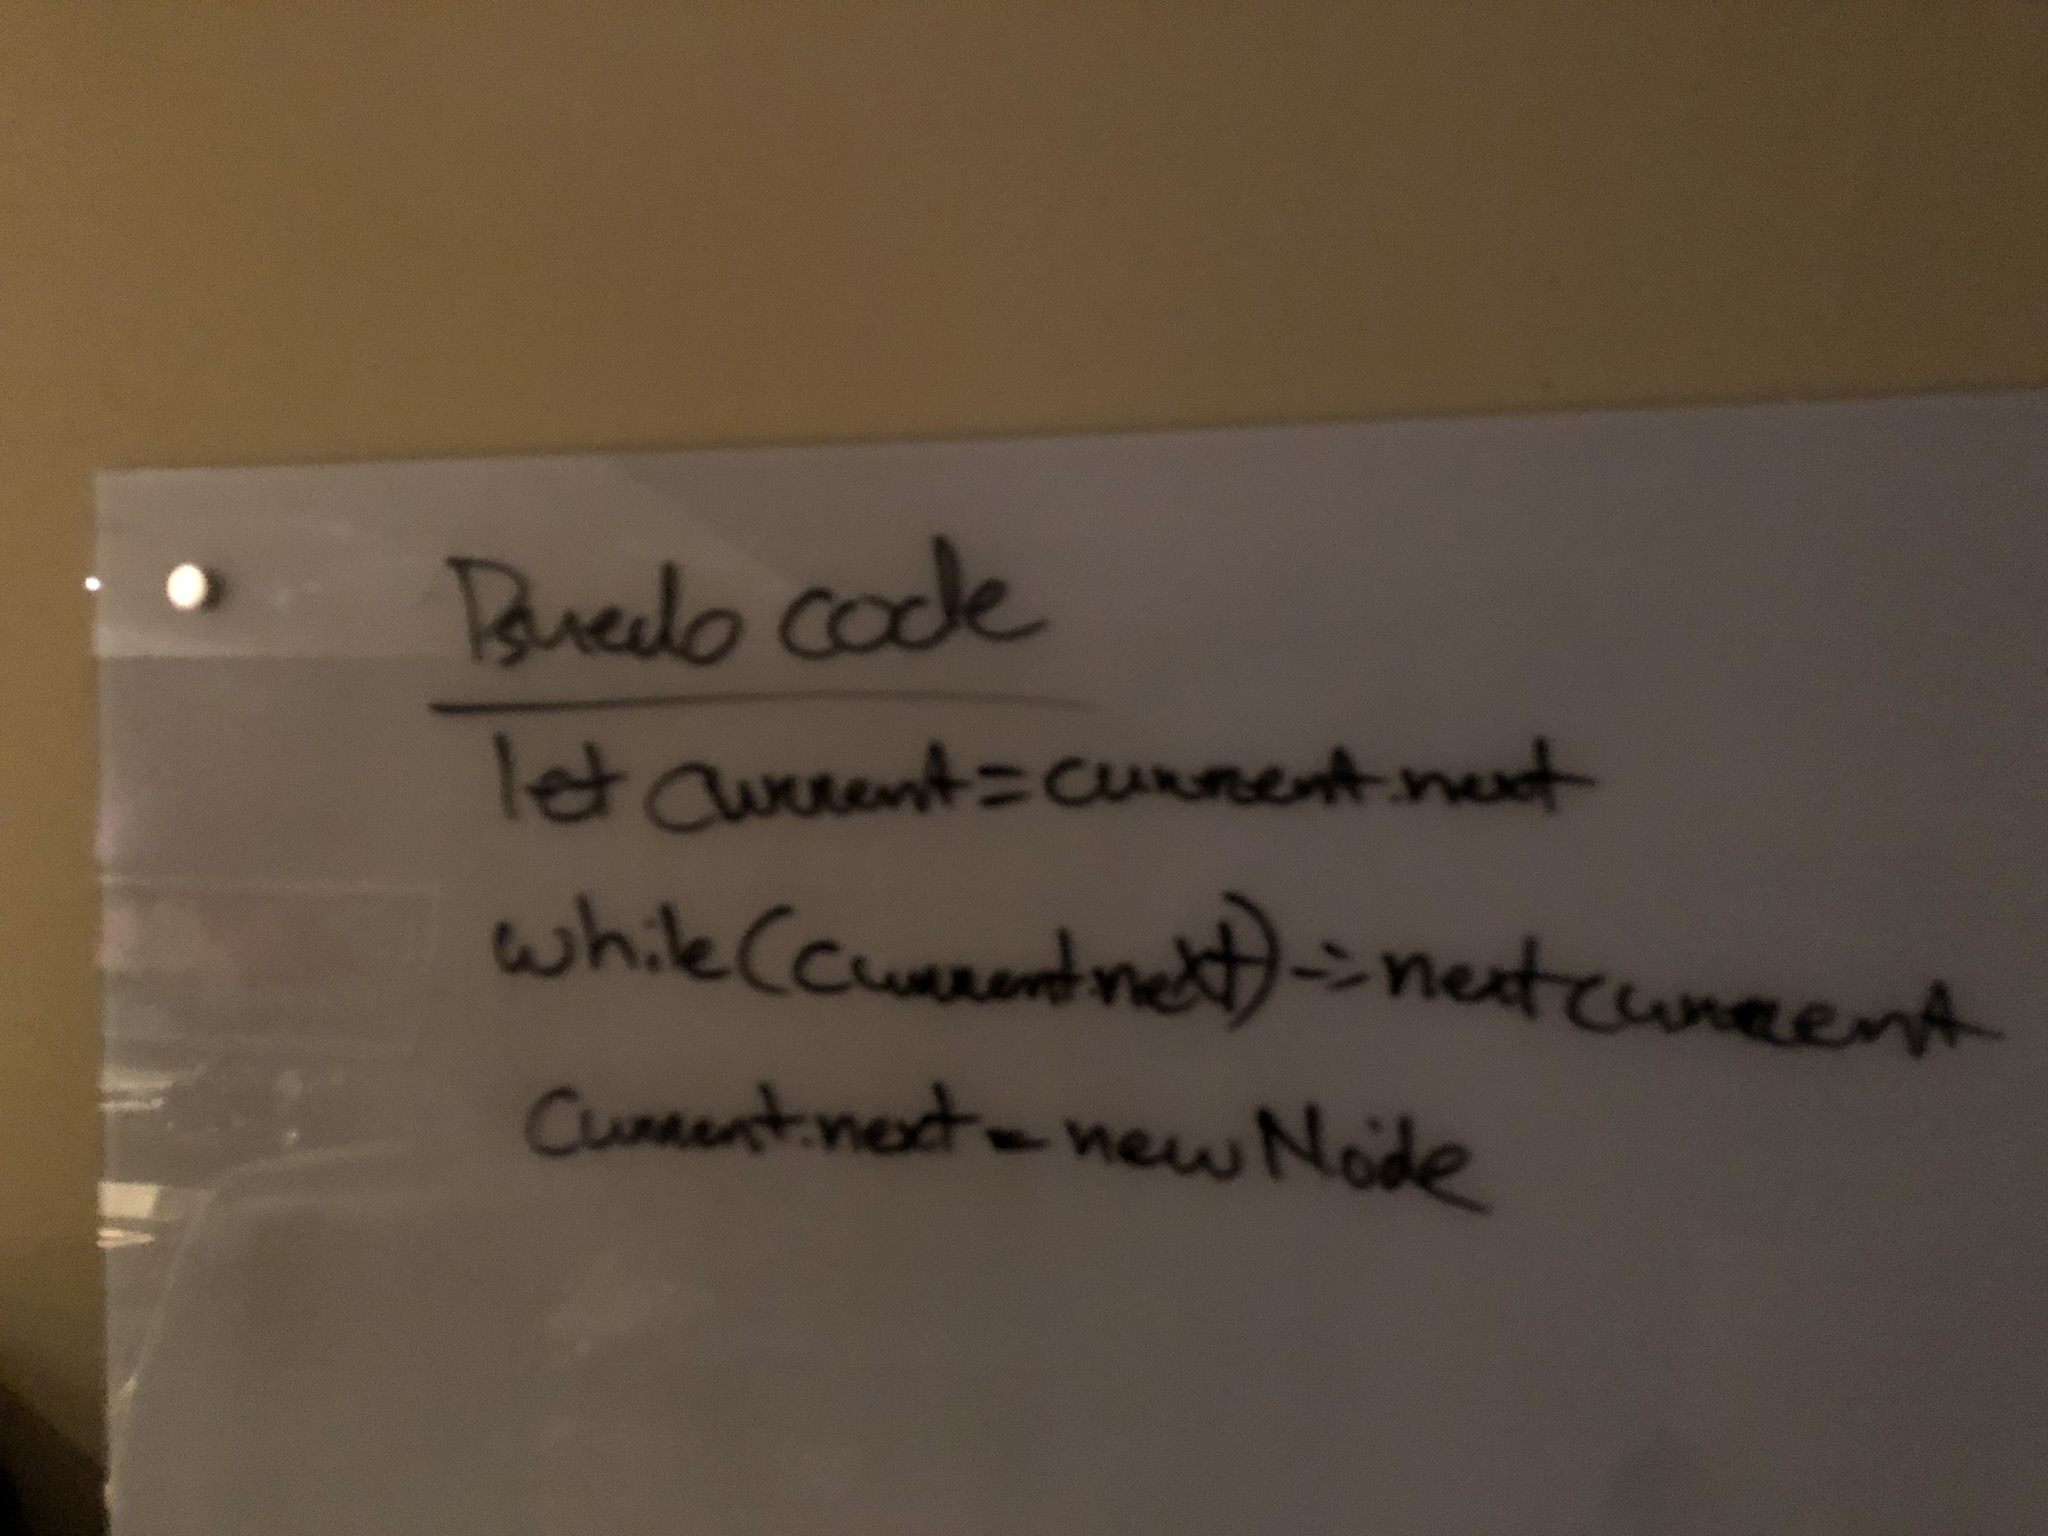 Psuedo code
let current = current.next
while (current.next) => next current
current.next = new Node